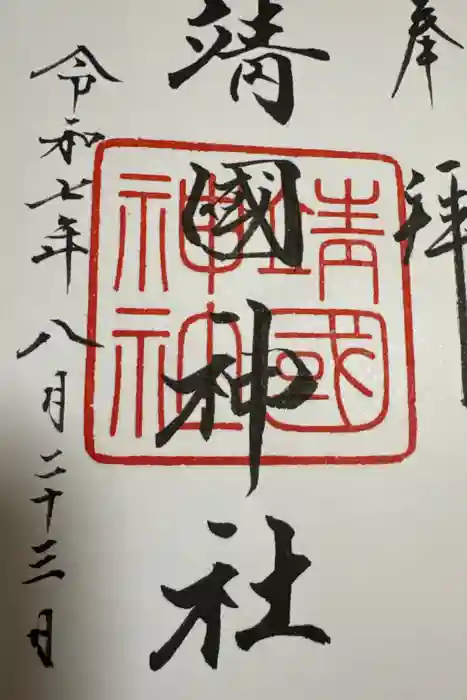 奉拝
靖國神社
靖國神社
令和七年八月二十三日